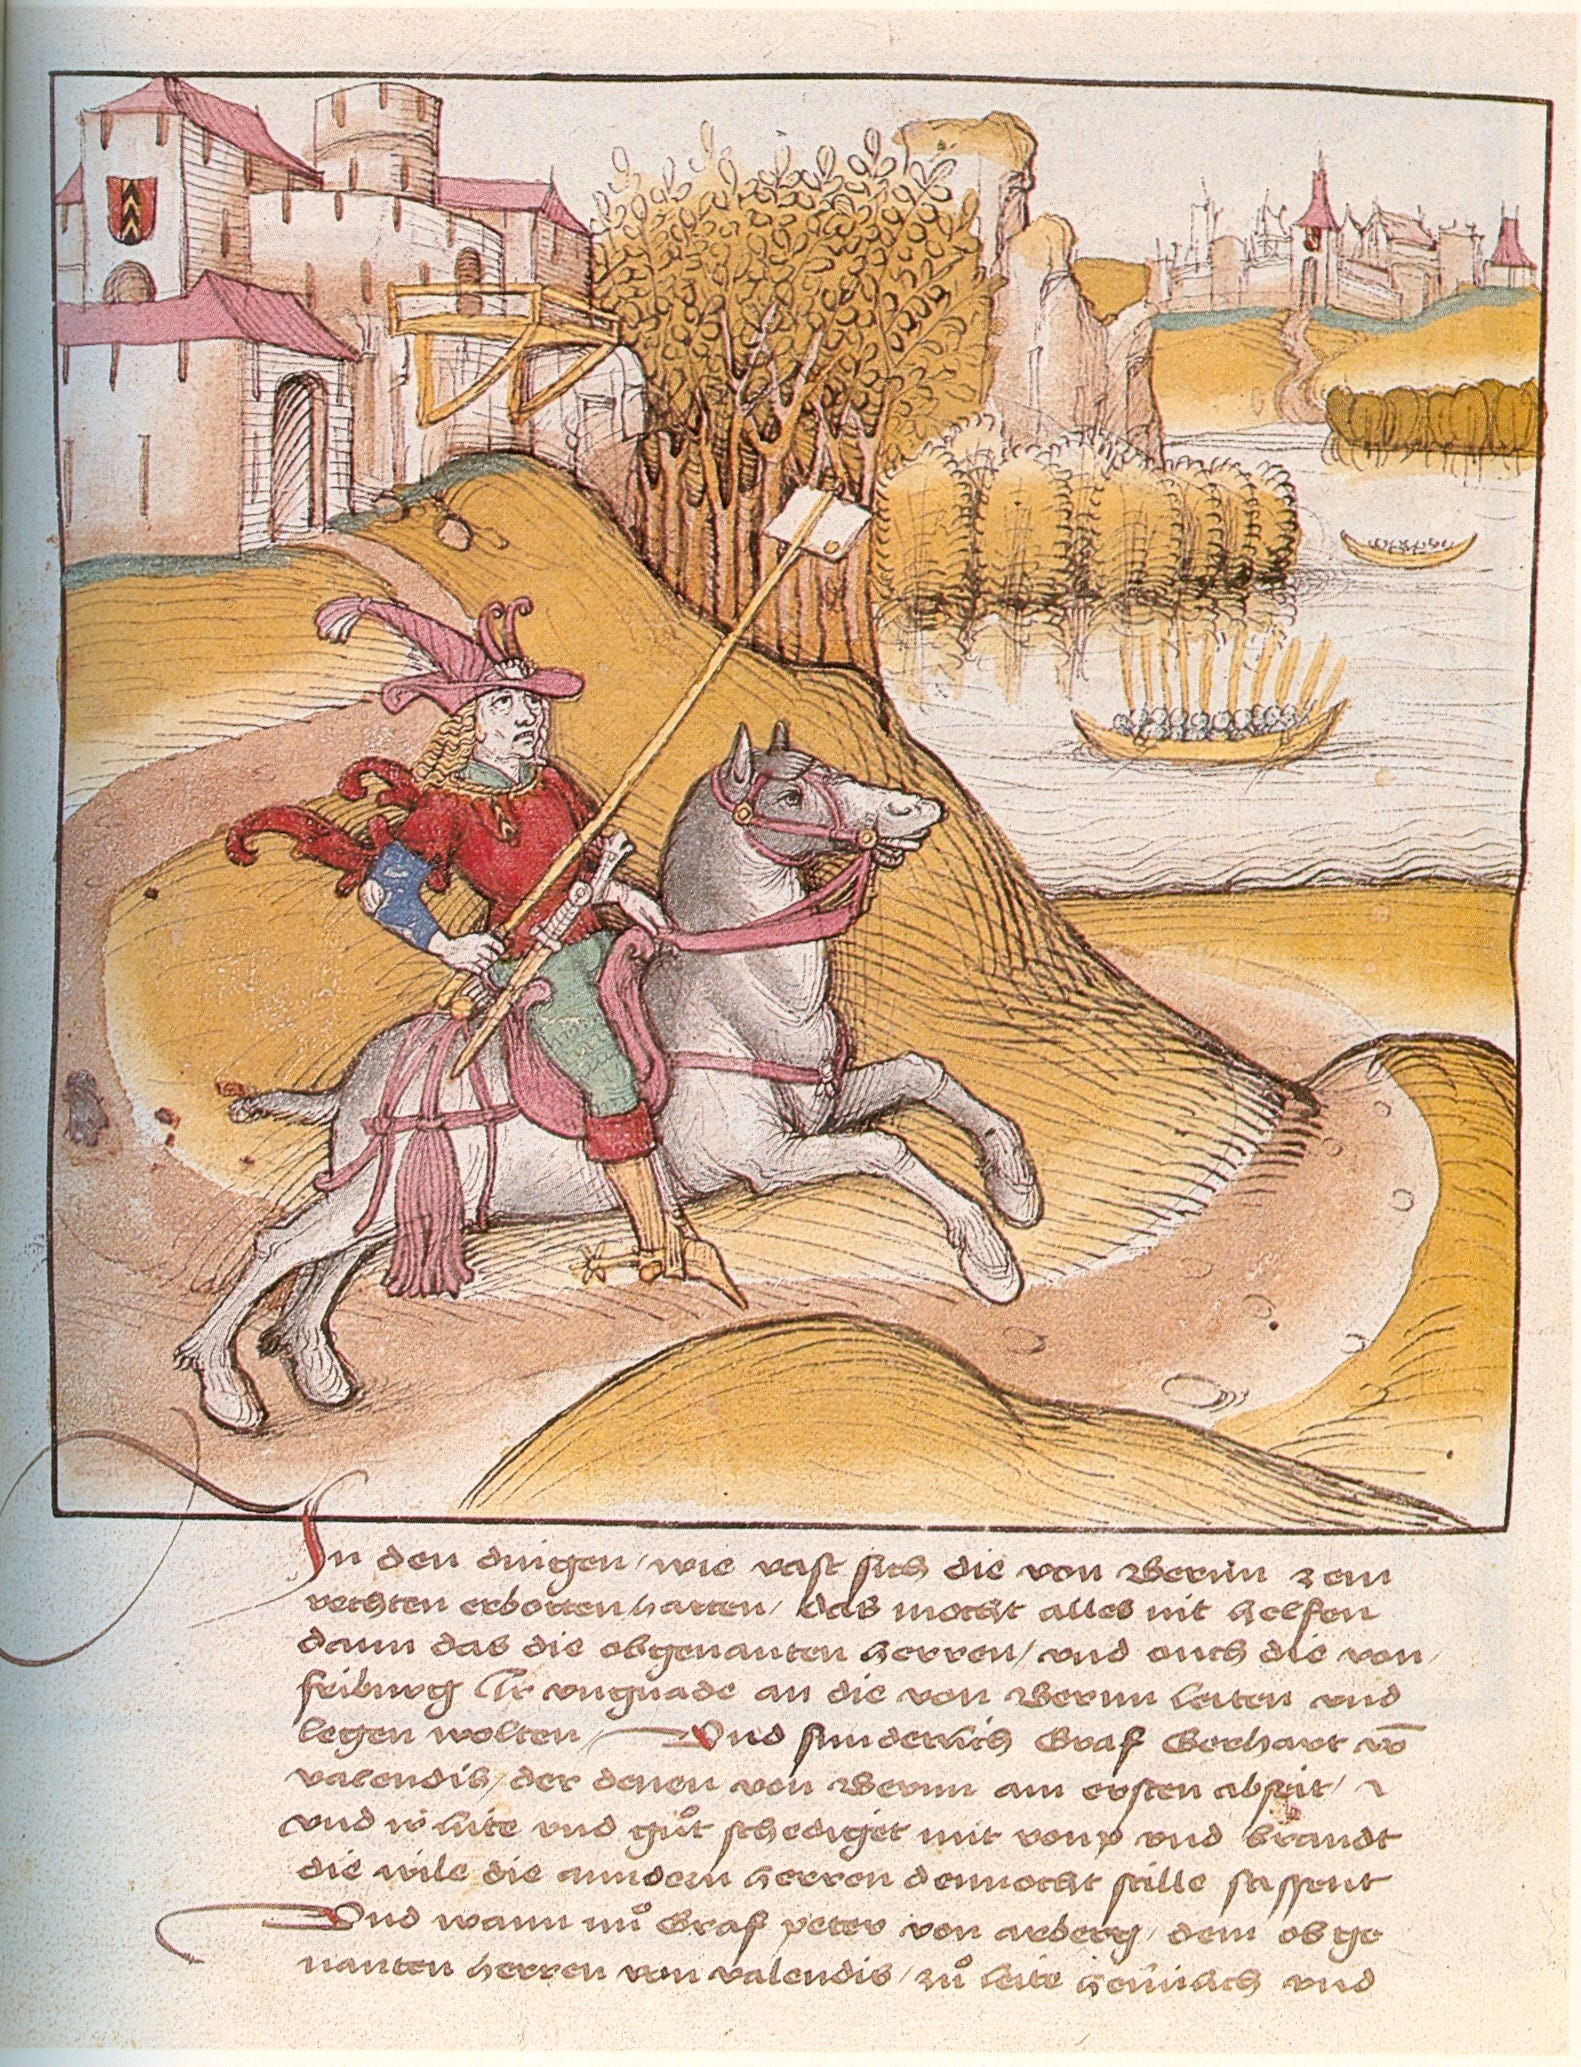 In den dingen / wie vast sich die von Bernn zem
rechten erbotten hatten / das mocht alles nit helfen
dann das die obgenanten herren / vnd ouch die von
friburg Ir vngnade an die von Bernn leiten vnd
legen wolten / Vnd sunderlich Graf Gerhart vō
valendis / der denen von Bernn am ersten abseit /
vnd ir lúte vnd gůt schediget mit roup vnd brandt
die wile die anndern herren dennocht stille sassent
Vnd wann nů Graf peter von arberg / dem obge
nanten herren von valendis / zů leite heimlich vnd